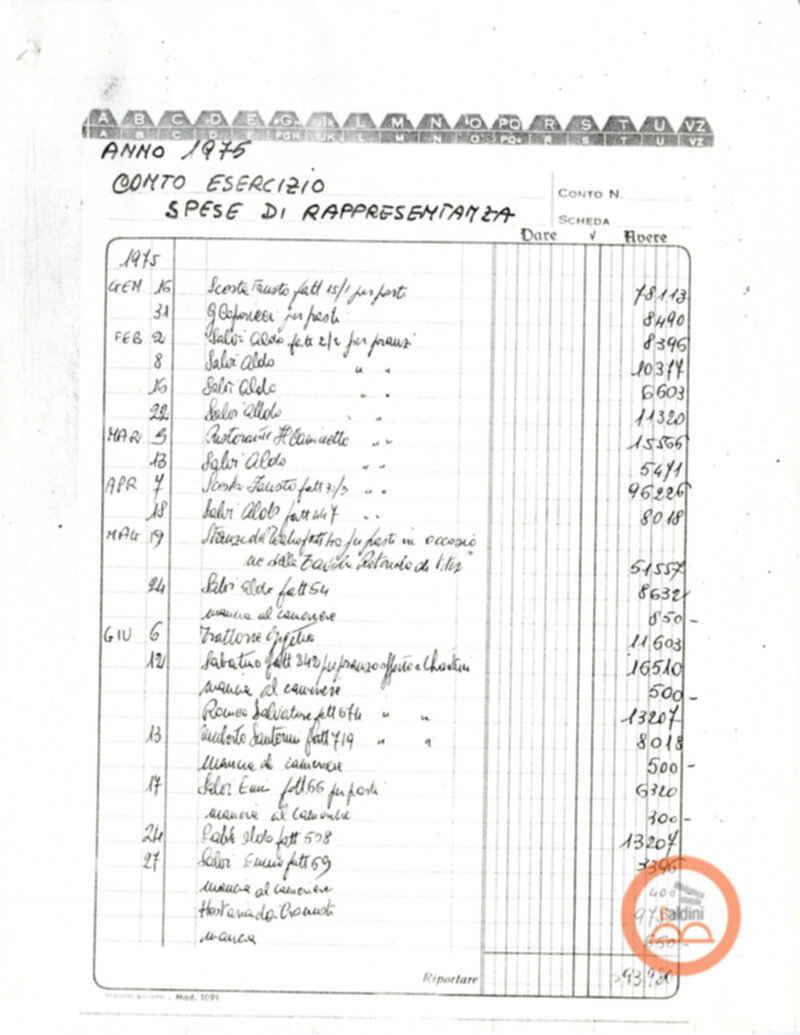 A B C D E FGH IJK L M N O PQ R S T U VZ
A B C D E FGH IJK L M N O PQ R S T U VZ
ANNO 1975
CONTO ESERCIZIO
SPESE DI RAPPRESENTANZA
CONTO N.
SCHEDA
Dare √ Avere
1975
GEN 16 Scosta Fausto fatt 15/1 per pasti 78113
31 per pasti 8490
FEB 2 Salvi Aldo fatt 2/2 per pranzi 8396
8 Salvi Aldo " " 10377
16 Salvi Aldo " " 6603
22 Salvi Aldo " " 11320
MAR 5 Ristorante Il Caminetto " " 15566
13 Salvi Aldo " " 5471
APR 7 Scosta Fausto fatt 31/3 " " 96226
18 Salvi Aldo fatt 447 " " 8018
MAG 19 per pasti in occasio
ne della Tavola Rotonda 51557
24 Salvi Aldo fatt 54 8632
mancia al cameriere 850 -
GIU 6 Trattoria 11603
12 Sabatino fatt 342 per pranzo offerto a 16510
mancia al cameriere 500 -
Romeo Salvatore fatt 674 " " 13207
13 Umberto Santorni fatt 719 " " 8018
mancia al cameriere 500 -
17 Salvi fatt 66 per pasti 6320
mancia al cameriere 300 -
24 Salvi Aldo fatt 508 13207
27 Salvi Ennio fatt 69 7396
mancia al cameriere 400
Hostaria da
mancia
Riportare
Mod. 1091
Biblioteca
statale
Baldini